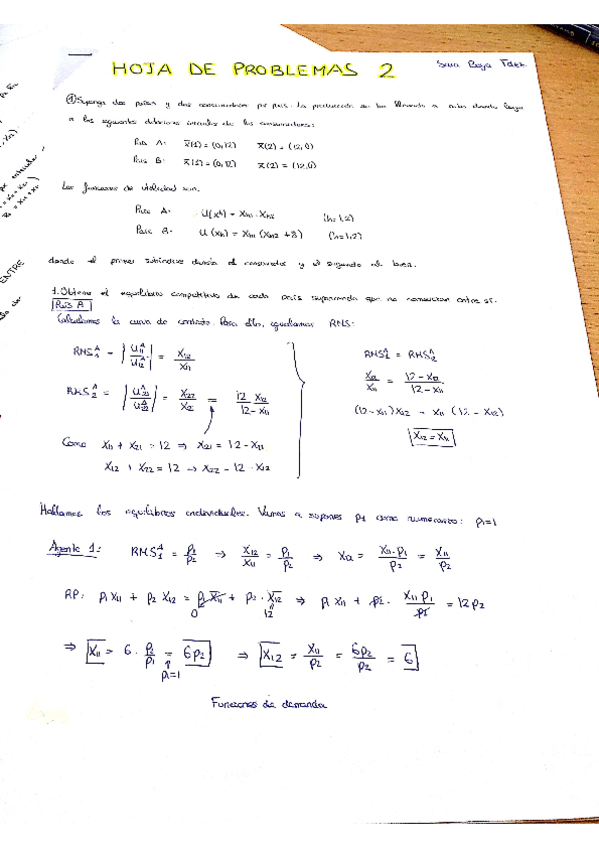 HOJA DE PROBLEMAS 2
① Suponga dos países y dos consumidores por país. La producción se ha llevado a cabo dando lugar
a las siguientes dotaciones iniciales de los consumidores:
País A: x̄(1) = (0,12) x̄(2) = (12,0)
País B: x̄(1) = (0,12) x̄(2) = (12,0)
Las funciones de utilidad son:
País A: U(xh) = Xh1 · Xh2 (h=1,2)
País B: U(xh) = Xh1 (Xh2 + 8) (h=1,2)
donde el primer subíndice denota el consumidor y el segundo el bien.
ENTRE
1. Obtener el equilibrio competitivo de cada país suponiendo que no comercian entre sí.
País A
Calculamos la curva de contrato. Para ello, igualamos RMS:
RMS₁ᴬ = |U₁₁ᴬ / U₁₂ᴬ| = X12 / X11
RMS₁ᴬ = RMS₂ᴬ
RMS₂ᴬ = |U₂₁ᴬ / U₂₂ᴬ| = X22 / X21 = 12 - X12 / 12 - X11
X12 / X11 = 12 - X12 / 12 - X11
(12 - X11) X12 = X11 (12 - X12)
X12 = X11
Como X11 + X21 = 12 ⇒ X21 = 12 - X11
X12 + X22 = 12 → X22 = 12 - X12
Hallamos los equilibrios individuales. Vamos a suponer p1 como numerario: p1=1
Agente 1: RMS₁ᴬ = p1/p2 → X12/X11 = p1/p2 ⇒ X12 = X11 · p1 / p2 = X11 / p2
RP: p1 X11 + p2 X12 = p1 X̄11 + p2 · X̄12 ⇒ p1 X11 + p2 · X11 p1 / p2 = 12 p2
0 12
⇒ X11 = 6 · p2/p1 = 6p2 ⇒ X12 = X11/p2 = 6p2/p2 = 6
p1=1
Funciones de demanda